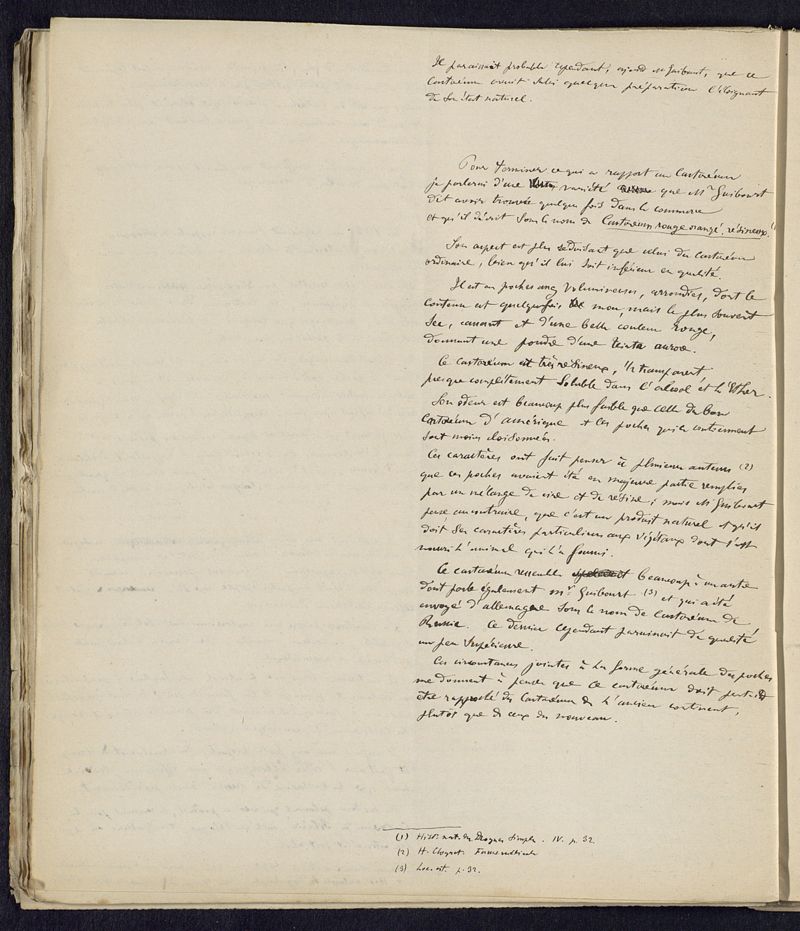 Il paraissait probable cependant, ajoute Mr Guibourt, que ce
Castoréum avait subi quelque préparation l'éloignant
de son état naturel.
Pour terminer ce qui a rapport au Castoréum
je parlerai d'une variété que Mr Guibourt
dit avoir trouvée quelque fois dans le commerce
et qu'il décrit sous le nom de Castoreum rouge orangé, résineux. (1)
Son aspect est plus séduisant que celui du Castoréum
ordinaire, bien qu'il lui soit inférieur en qualité.
Il est en poches assez volumineuses, arrondies, dont le
contenu est quelquefois mou, mais le plus souvent
sec, cassant et d'une belle couleur rouge,
donnant une poudre d'une teinte aurore.
Ce castoréum est très résineux, 1/2 transparent,
presque complètement soluble dans l'alcool et l'Ether.
Son odeur est beaucoup plus faible que celle du bon
Castoréum d'amérique et les poches qui le contiennent
sont moins cloisonnées.
Ces caractères ont fait penser à plusieurs auteurs (2)
que ces poches avaient été en majeure partie remplies
par un mélange de cire et de résine ; mais Mr Guibourt
pense au contraire, que c'est un produit naturel et qu'il
doit ses caractères particuliers aux végétaux dont s'est
nourri l'animal qui l'a fourni.
Ce castoréum ressemble beaucoup à un autre
dont parle également Mr Guibourt (3) et qui a été
envoyé d'allemagne sous le nom de Castoréum de
Russie. Ce dernier cependant paraissait de qualité
un peu supérieure.
Ces circonstances jointes à la forme générale des poches
me donnent à penser que ce castoréum doit
être rapporté des Castoréum de l'ancien continent,
plutôt que de ceux du nouveau.
(1) Hist. nat. des Drogues simples. IV. p. 32.
(2) H. Cloquet.
(3) Loc. cit. p. 32.